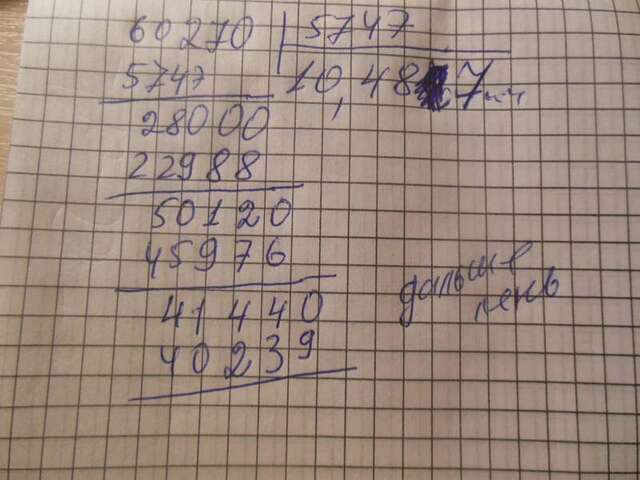 60270 5747
5747 10,487
28000
22988
50120
45976
41440
40239
дальше
лень